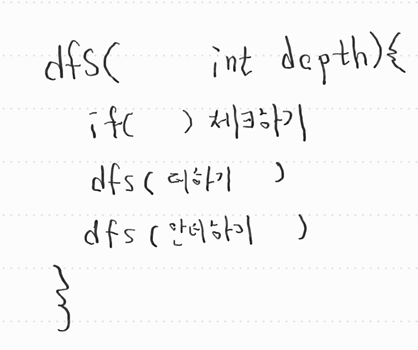 dfs(      int depth){
if(   ) 체크하기
dfs ( 더하기   )
dfs ( 안더하기   )
}